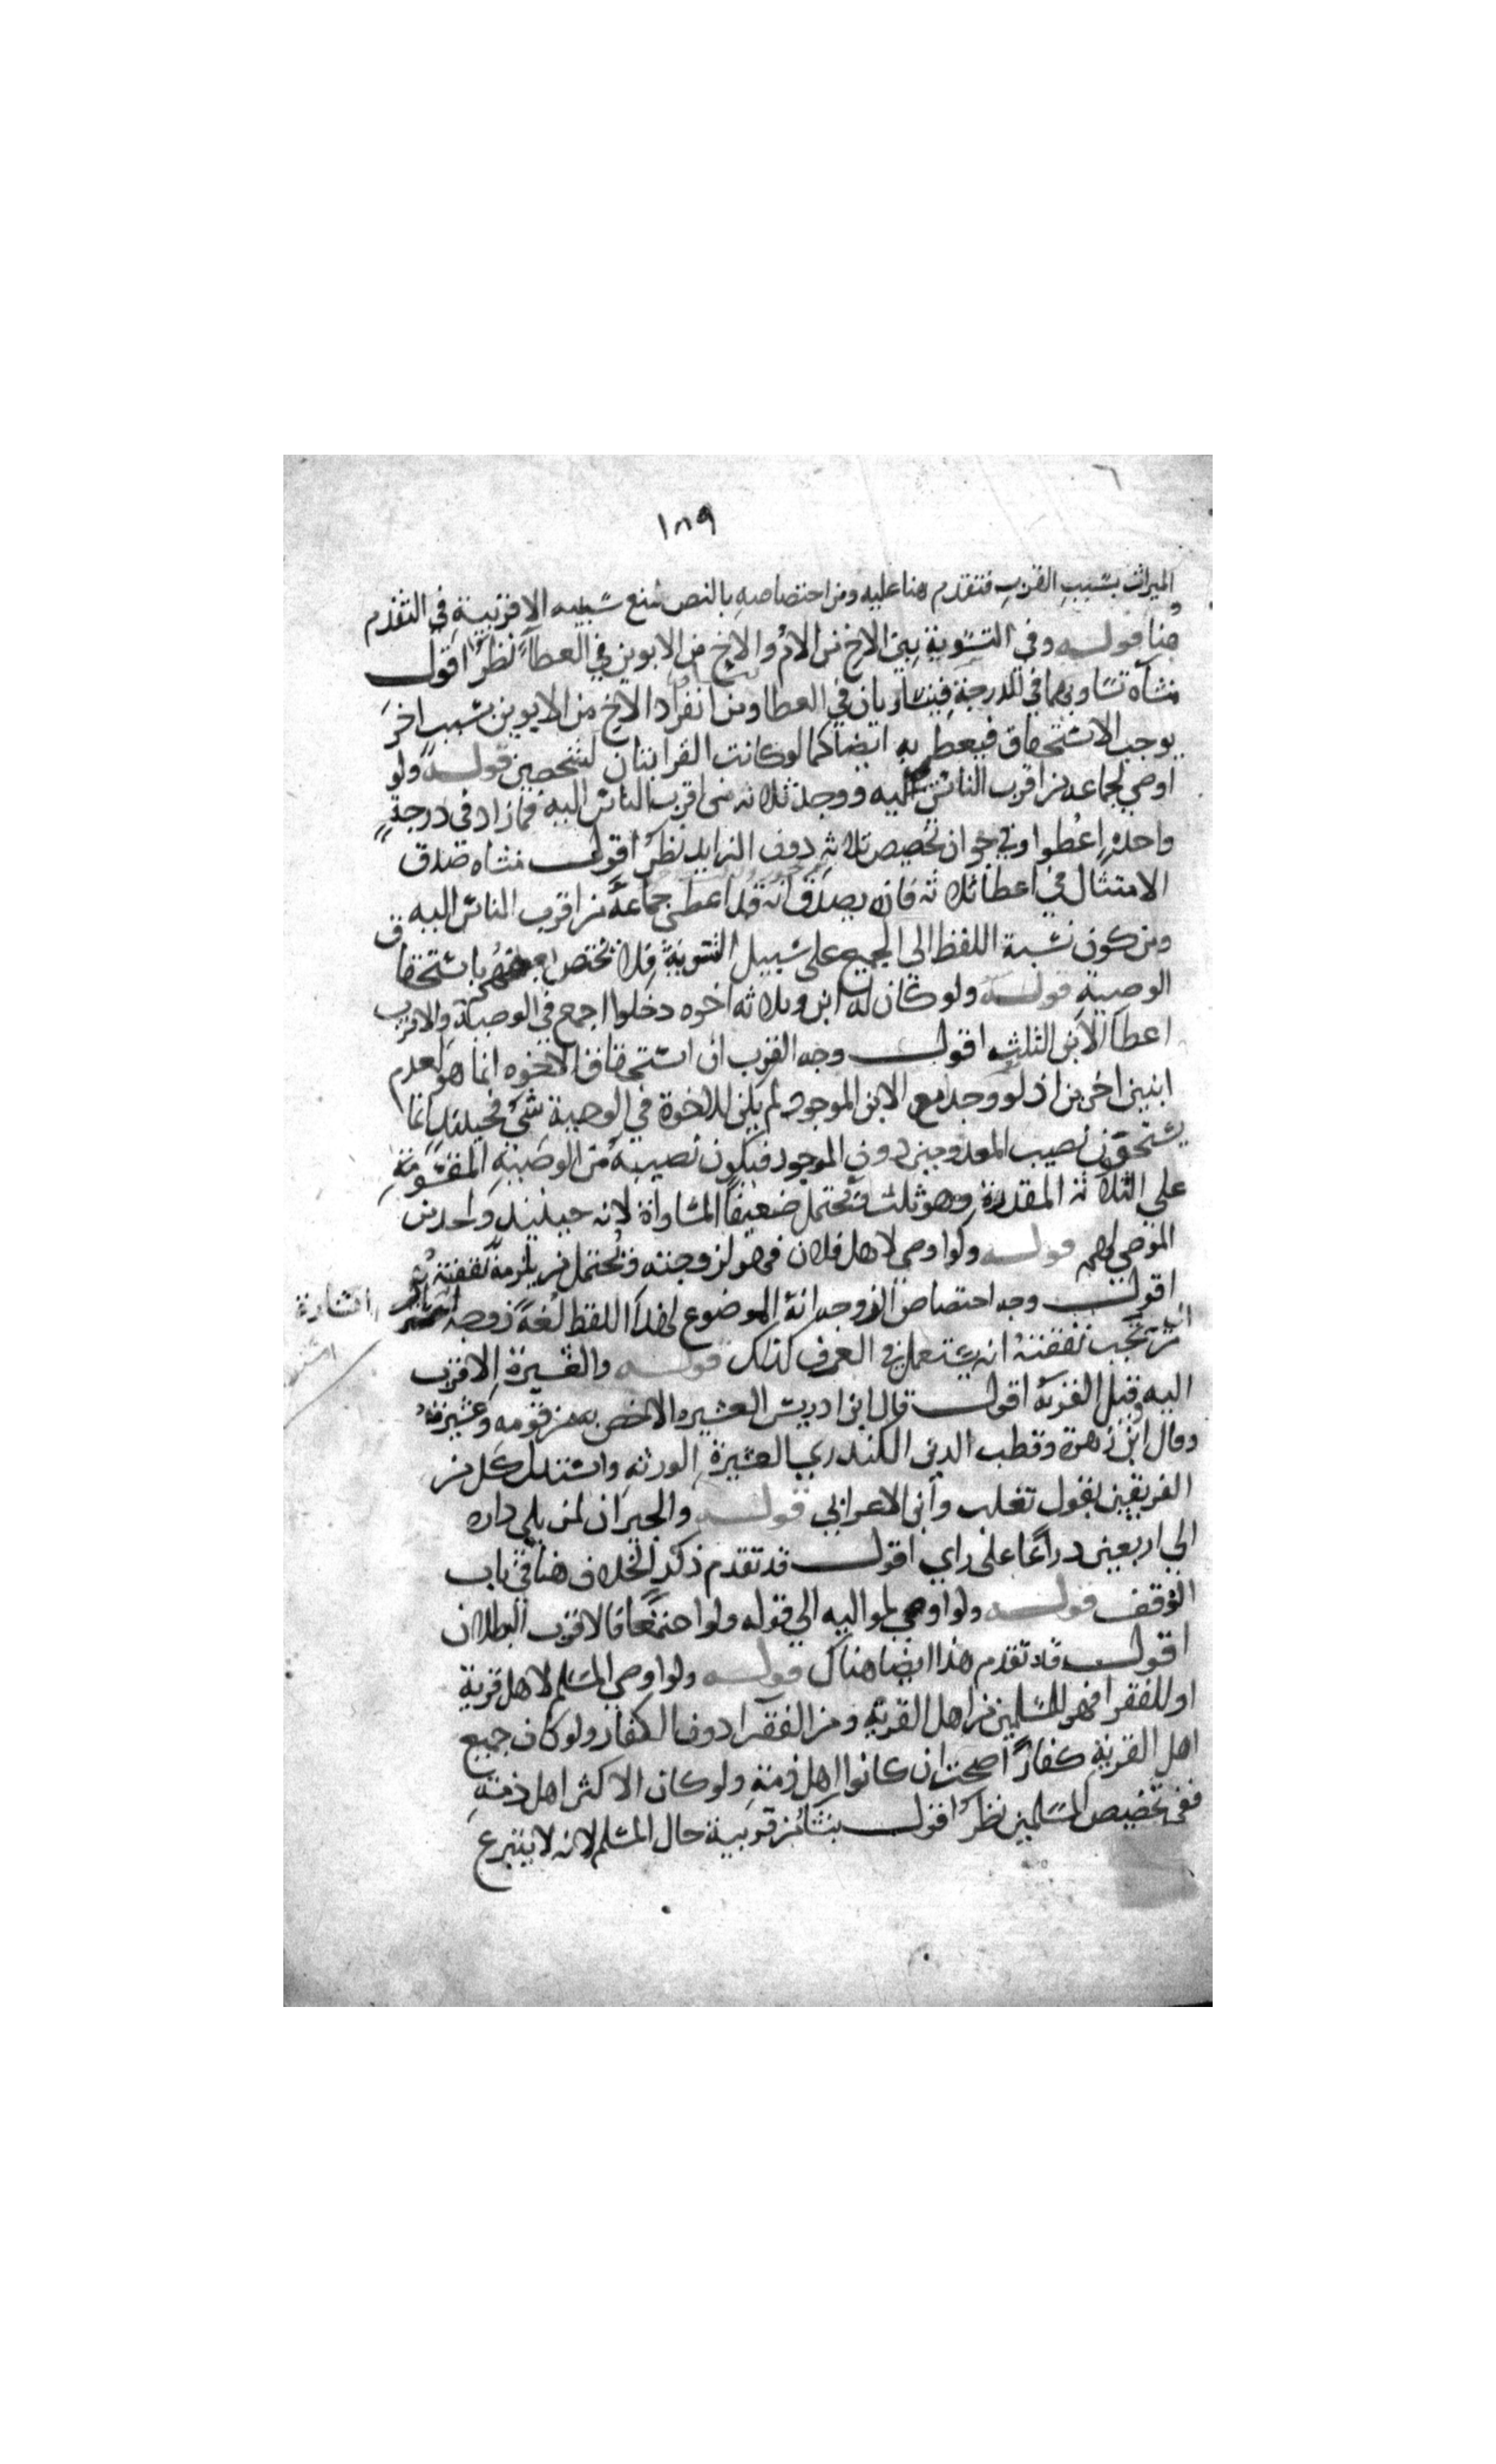 ١٨٩
الميراث بسبب القرب فتقدم هنا عليه ومن اختصاصه بالنص منع سببيه الاقربية في التقدم
هنا قوله وفي التسوية بين الاخ من الام والاخ من الابوين في العطاء نظر اقول
منشاه تساويهما في الدرجة فيتساويان في العطا ومن انفراد الاخ من الابوين بسبب اخر
يوجب الاستحقاق فيعطى به ايضا كما لو كانت القرابتان لشخصين قوله ولو
اوصي لجماعه من اقرب الناس اليه ووجد ثلاثه من اقرب الناس اليه فما زاد في درجة
واحده اعطوا وفي جواز تخصيص ثلاثه دون الزايد نظر اقول منشاه صدق
الامتثال في اعطا ثلاثه فانه يصدق انه قد اعطى جماعة من اقرب الناس اليه
ومن كون نسبة اللفظ الى الجميع على سبيل التسوية فلا يختص بعضهم باستحقاق
الوصية قوله ولو كان له ابن وثلاثه اخوه دخلوا اجمع في الوصية والاقرب
اعطا الابن الثلث اقول وجه القرب ان استحقاق الاخوه انما هو لعدم
ابنين اخرين اذ لو وجدا مع الابن الموجود لم يكن للاخوة في الوصية شي فحينئذ انما
يستحقون نصيب المعدومين دون الموجود فيكون نصيبه من الوصية المقسومة
على الثلاثة المقدرة وهو ثلث ويحتمل ضعيفا المساواة لانه حينئذ واحد من
الموصي لهم قوله ولو اوصى لاهل فلان فهو لزوجته ويحتمل من يلزمه نفقته
اقول وجه اختصاص الزوجه انه الموضوع لهذا اللفظ لغة ووجه
من تجب نفقته انه يستعمل في العرف كذلك قوله والعشيرة الاقرب
اليه وقيل القربة اقول قال ابن ادريس العشيره الاخص به من قومه وعشيرته
وقال ابن زهرة وقطب الدين الكندري العشيرة الورثه واستدل كل من
الفريقين بقول تغلب وابن الاعرابي قوله والجيران لمن يلي داره
الي اربعين دراعا على راي اقول قد تقدم ذكر الخلاف هنا في باب
الوقف قوله ولو اوصي لمواليه الي قوله ولو اجتمعا فالاقرب البطلان
اقول قد تقدم هذا ايضا هناك قوله ولو اوصي المسلم لاهل قرية
او للفقرا فهو للمسلمين من اهل القرية ومن الفقرا دون الكفار ولو كان جميع
اهل القرية كفارا صحت ان كانوا اهل ذمة ولو كان الاكثر اهل ذمة
ففي تخصيص المسلمين نظر اقول ينشا من قرينة حال المسلم لانه لا يتبرع